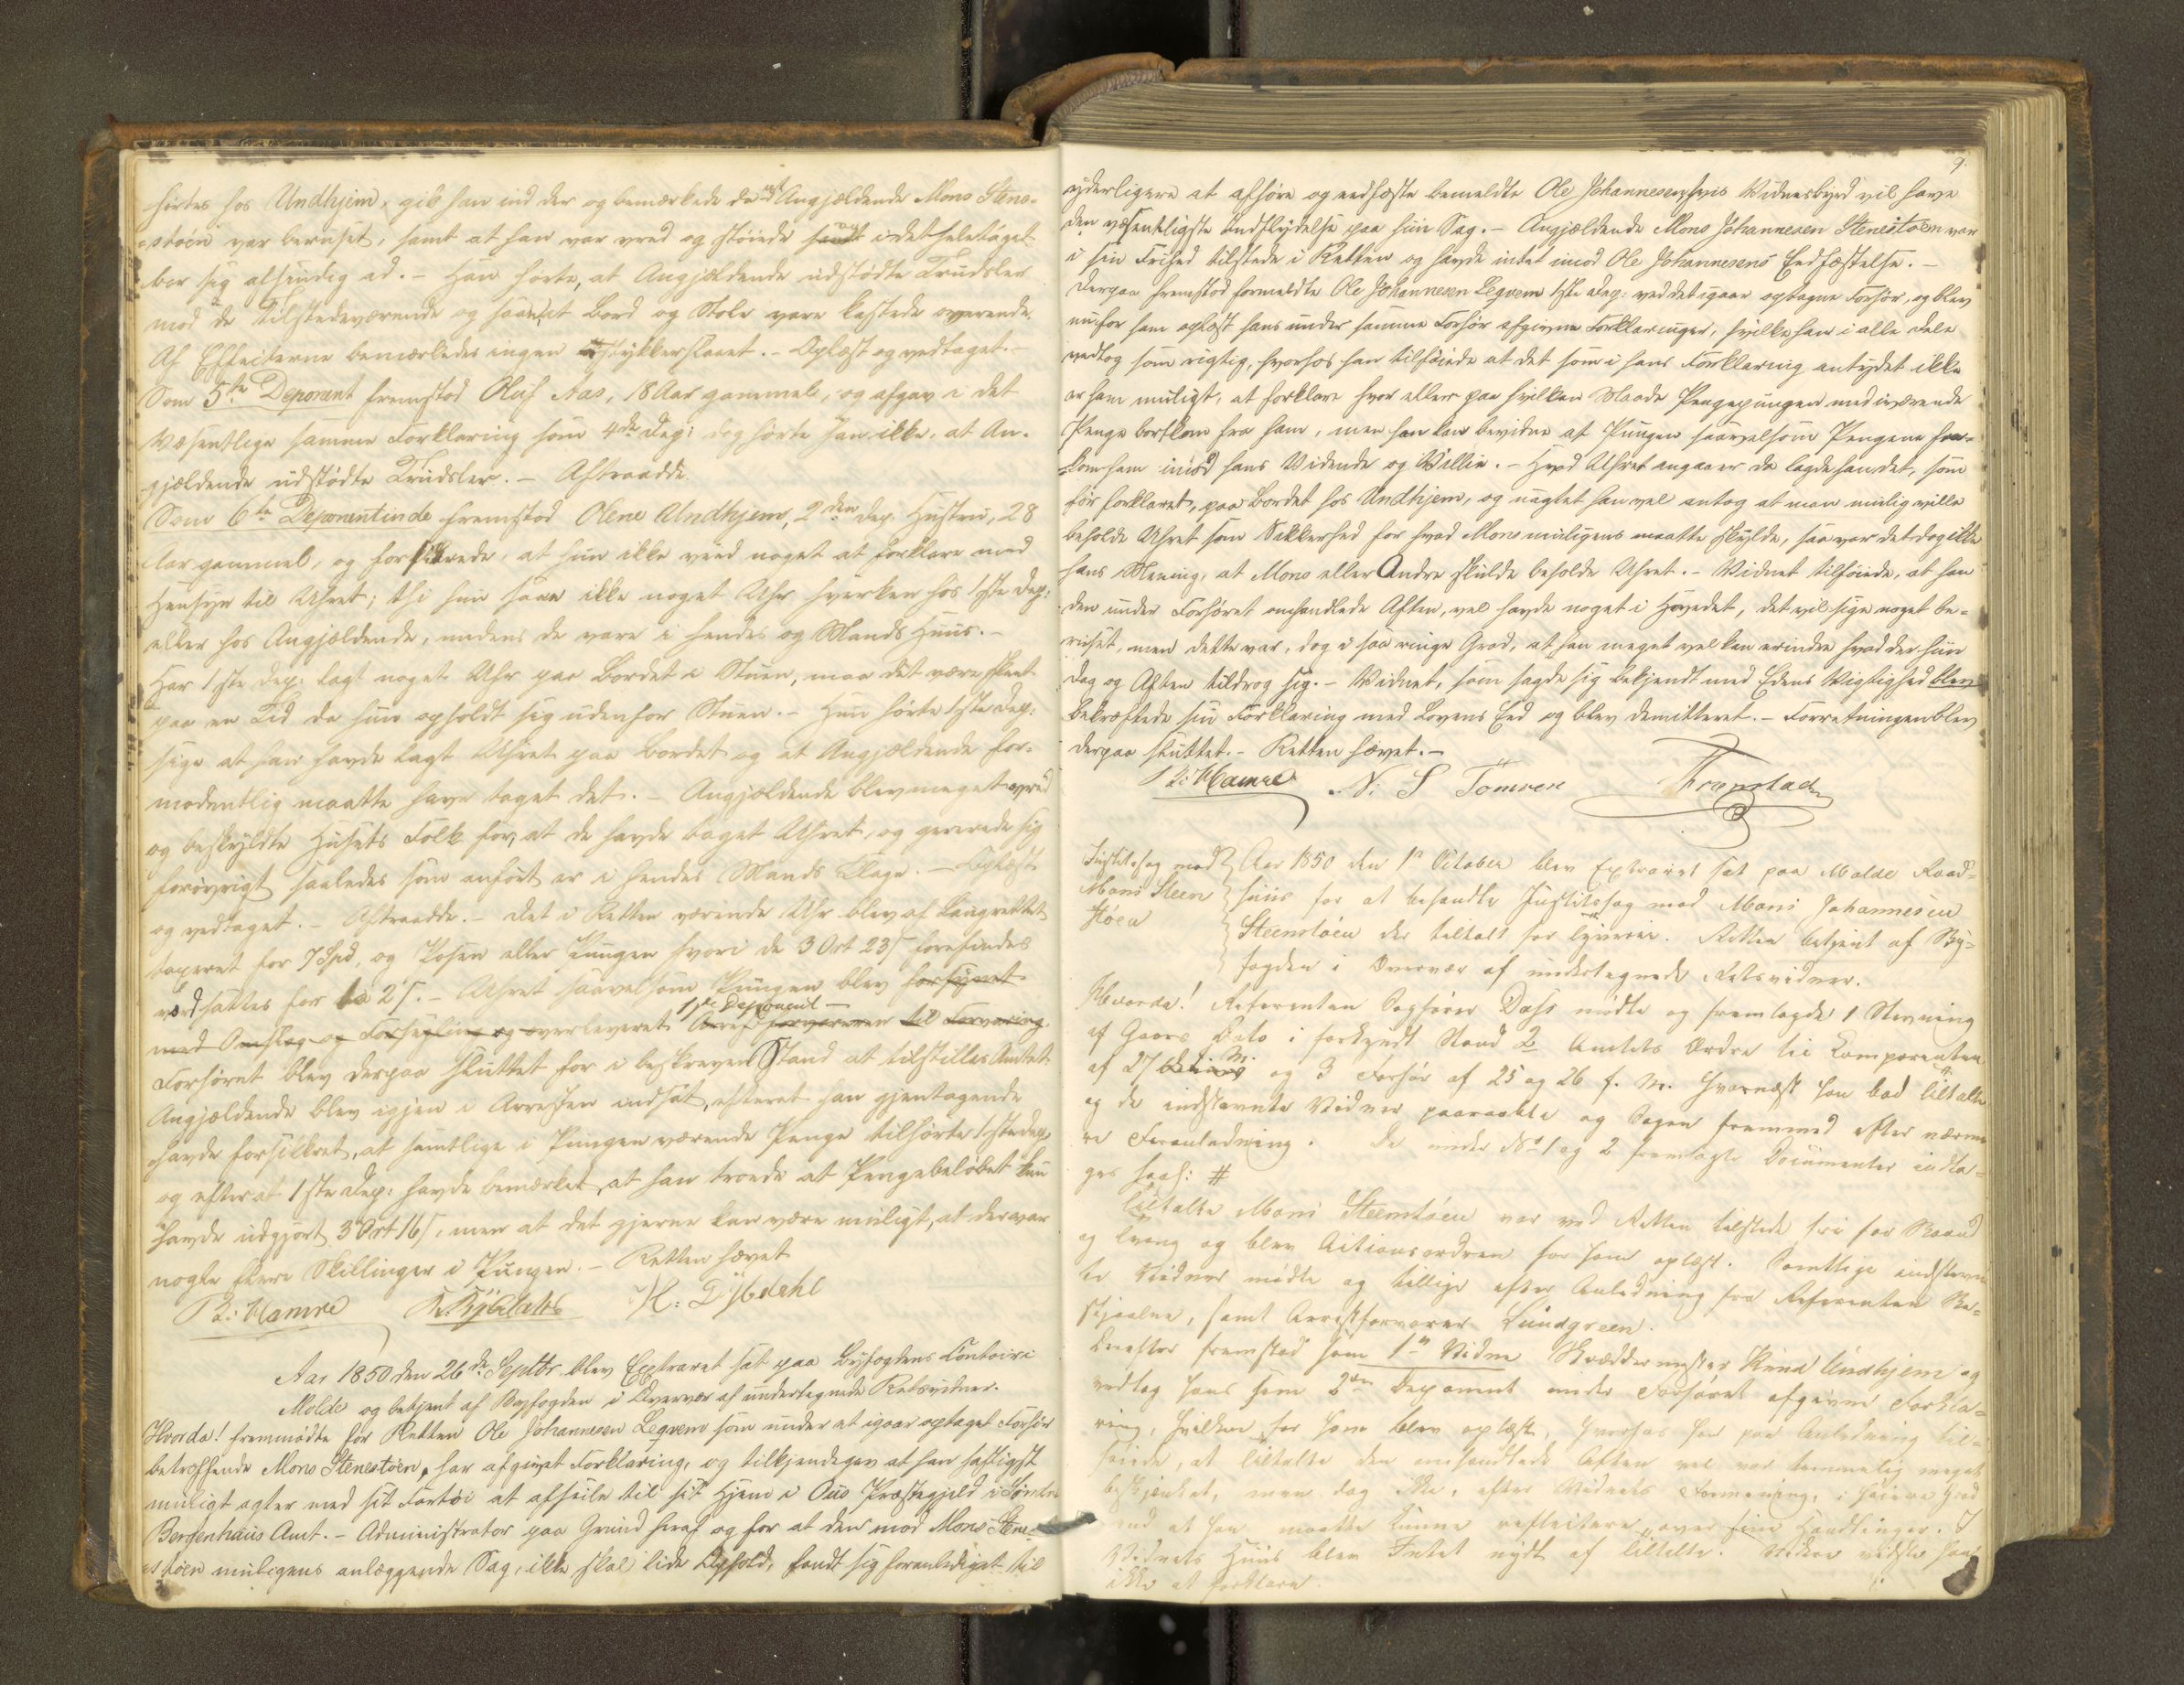 hørtes hos Undhjem, gik han ind der og bemærkede da at Angjældende Mons Stene-
støen var beruset, samt at han var vred og støiede samt i det hele taget
bar sig usindig ad. - Han hørte, at Angjældende udstødte Trudsler
mod de tilstedeværende og saa at Bord og Stole vare kastede overende.
Af Effecterne bemærkedes ingen stykkerslaaet. - Oplæst og vedtaget. -
Som 5te Deponent fremstod Oluf Aas, 18 Aar gammel, og afgav i det
Væsentlige samme Forklaring som 4de Dep: dog hørte han ikke, at An-
gjældende udstødte Trudsler. - Aftraadde.
Som 6te Deponentinde fremstod Olene Undhjem, 2den Dep. Hustru, 28
Aar gammel, og forklarede, at hun ikke veed noget at forklare med
Hensyn til Uhret; thi hun saae ikke noget Uhr hverken hos 1ste Dep:
eller hos Angjældende, medens de vare i hendes og Mands Huus. -
Har 1ste Dep: lagt noget Uhr paa Bordet i Stuen, maa det være skeet
paa en Tid da hun opholdt sig udenfor Stuen. - Hun hørte 1ste Dep:
sige at han havde lagt Uhret paa Bordet og at Angjældende for-
modentlig maatte have taget det. - Angjældende blev meget vred
og beskyldte Husets Folk for at de havde taget Uhret, og gererede sig
forøvrigt saaledes som anført er i hendes Mands Klage. - Oplæst
og vedtaget. - Aftraadde. - Det i Retten værende Uhr blev af Laugrettet
taxeret for 7 Spd, og Posen eller Pungen hvori de 3 Ort 23 s forefindes
værdsattes for 2 s. - Uhret saavelsom Pungen blev forsynet
med Omslag og Forsegling og overleveret 1ste Deponent Arrestforvareren til Forvaring
Forhøret blev derpaa sluttet for i beskreven Stand at tilstilles Amtet.
Angjældende blev igjen i Arresten indsat, efterat han gjentagende
havde forsikkret, at samtlige i Pungen værende Penge tilhørte 1ste Dep:
og efterat 1ste Dep: havde bemærket, at han troede at Pengebeløbet kun
havde udgjort 3 Ort 16 s, men at det gjerne kan være muligt, at der var
nogle flere Skillinger i Pungen. - Retten hævet
B: Hamre H: Dybdahl
Aar 1850 den 26de Septbr blev Extraret sat paa Byfogdens Contoir i
Molde og betjent af Byfogden i Overvær af undertegnede Retsvidner.
Hvorda! fremmødte for Retten Ole Johannesen Legvem som under et igaar optaget Forhør
betræffende Mons Stenestøen, har afgivet Forklaring, og tilkjendegav at han hastigst
muligt agter med sit Fartøi at afseile til sit Hjem i Ous Præstegjeld i Søndre
Bergenhuus Amt. - Administrator paa Grund heraf og for at den mod Mons Stene-
støen muligens anlæggende Sag, ikke skal lide Ophold, fandt sig foranlediget til
9.
yderligere at afhøre og eedfæste bemeldte Ole Johannesen, hvis Vidnesbyrd vil have
den væsentligste Indflydelse paa hiin Sag. - Angjældende Mons Johannesen Stenestøen var
i sin Frihed tilstede i Retten og havde intet imod Ole Johannesens Eedfæstelse. -
Derpaa fremstod formeldte Ole Johannesen Legvem 1ste Dep: ved det igaar optagne Forhør, og blev
nu for ham oplæst hans under samme Forhør afgivne Forklaringer, hvilke han i alle Dele
vedtog som rigtig, hvorhos han tilføiede at det som i hans Forklaring antydet ikke
er ham muligt, at forklare hvor eller paa hvilken Maade Pengepungen med iværende
Penge bortkom fra ham, men han kan bevidne at Pungen saavelsom Pengene fra-
kom ham imod hans Vidende og Villie. - Hvad Uhret angaaer da lagde han det, som
før forklaret, paa Bordet hos Undhjem, og uagtet han vel antog at man mulig ville
beholde Uhret som Sikkerhed for hvad Mons muligens maatte skylde, saa var det dog ikke
hans Mening, at Mons eller Andre skulde beholde Uhret. - Vidnet tilføiede, at han
den under Forhøret omhandlede Aften, vel havde noget i Hovedet, det vil sige noget be-
ruset, men dette var, dog i saa ringe Grad, at han meget vel kan erindre hvad der hiin
Dag og Aften tildrog sig. - Vidnet, som sagde sig bekjendt med Edens Vigtighed blev
bekræftede sin Forklaring med Lovens Eed og blev demitteret. - Forretningen blev
derpaa sluttet. - Retten hævet. -
B: Hamre N: S Tomren Frapstad
Justitssag mod
Mons Steen
støen
Aar 1850 den 1ste October blev Extraret sat paa Molde Raad-
huus for at behandle Justitssag mod Mons Johannesen
Steenstøen der tiltalt for tyverie. Retten betjent af By-
fogden i Overvær af undertegnede Retsvidner.
Hvorda! Referenten Sagfører Dass mødte og fremlagde 1 Stevning
af Gaars Dato i forkyndt Stand 2 Amtets Ordre til Comparenten
af 27 f. M. og 3 Forhør af 25 og 26 f. M. hvornæst han bad tiltalte
og de indstevnte Vidner paaraabte og Sagen fremmed efter nærme-
re Foranledning. De under No 1 og 2 fremlagte Documenter indta-
ges saal: #
Tiltalte Mons Steenstøen var ved Retten tilstede fri for Baand
og tvang og blev Actionsordren for ham oplæst. Samtlige indstevn-
te Vidner mødte og tillige efter Anledning fra Referenten Be-
skjærlne, samt Arrestforvarer Lundgreen.
Derefter fremstod som 1ste Vidne Skræddermester Knud Undhjem og
vedtog hans som 2den Deponent under Forhøret afgivne Forkla-
ring, hvilken for ham blev oplæst, hvorhos han paa Anledning til-
føiede, at tiltalte den omhandlede Aften vel var temmelig meget
beskjænket, men dog ikke, efter Vidnets Formening, i høiere Grad
end at han maatte kunne reflectere over sine Handlinger. I
Vidnets Huus blev Intet nydt af tiltalte. Videre vidste han
ikke at forklare.